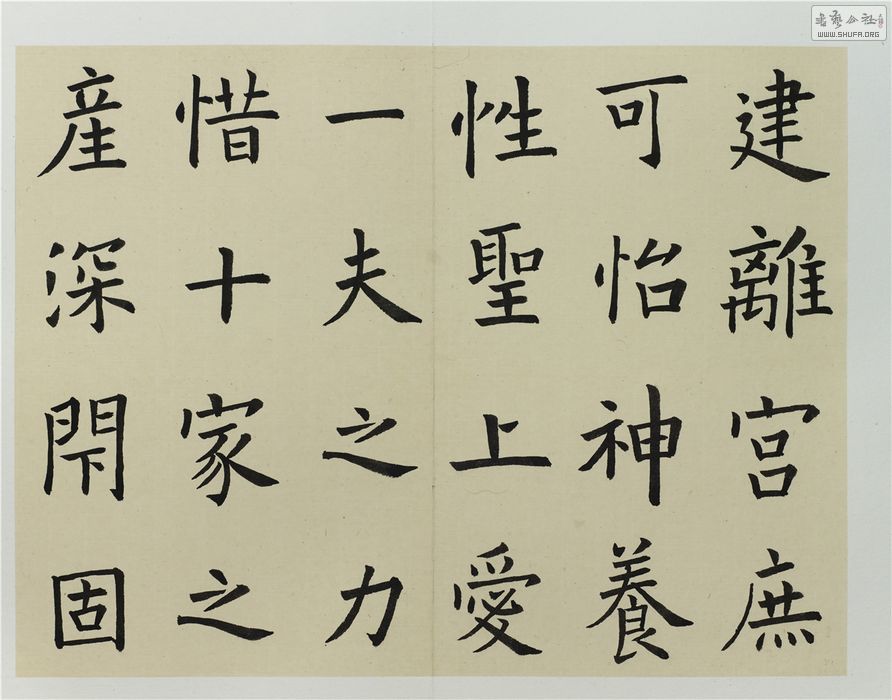 建離宮庶
可怡神養
性聖上愛
一夫之力
惜十家之
産深閇固
書藝公社
WWW.SHUFA.ORG